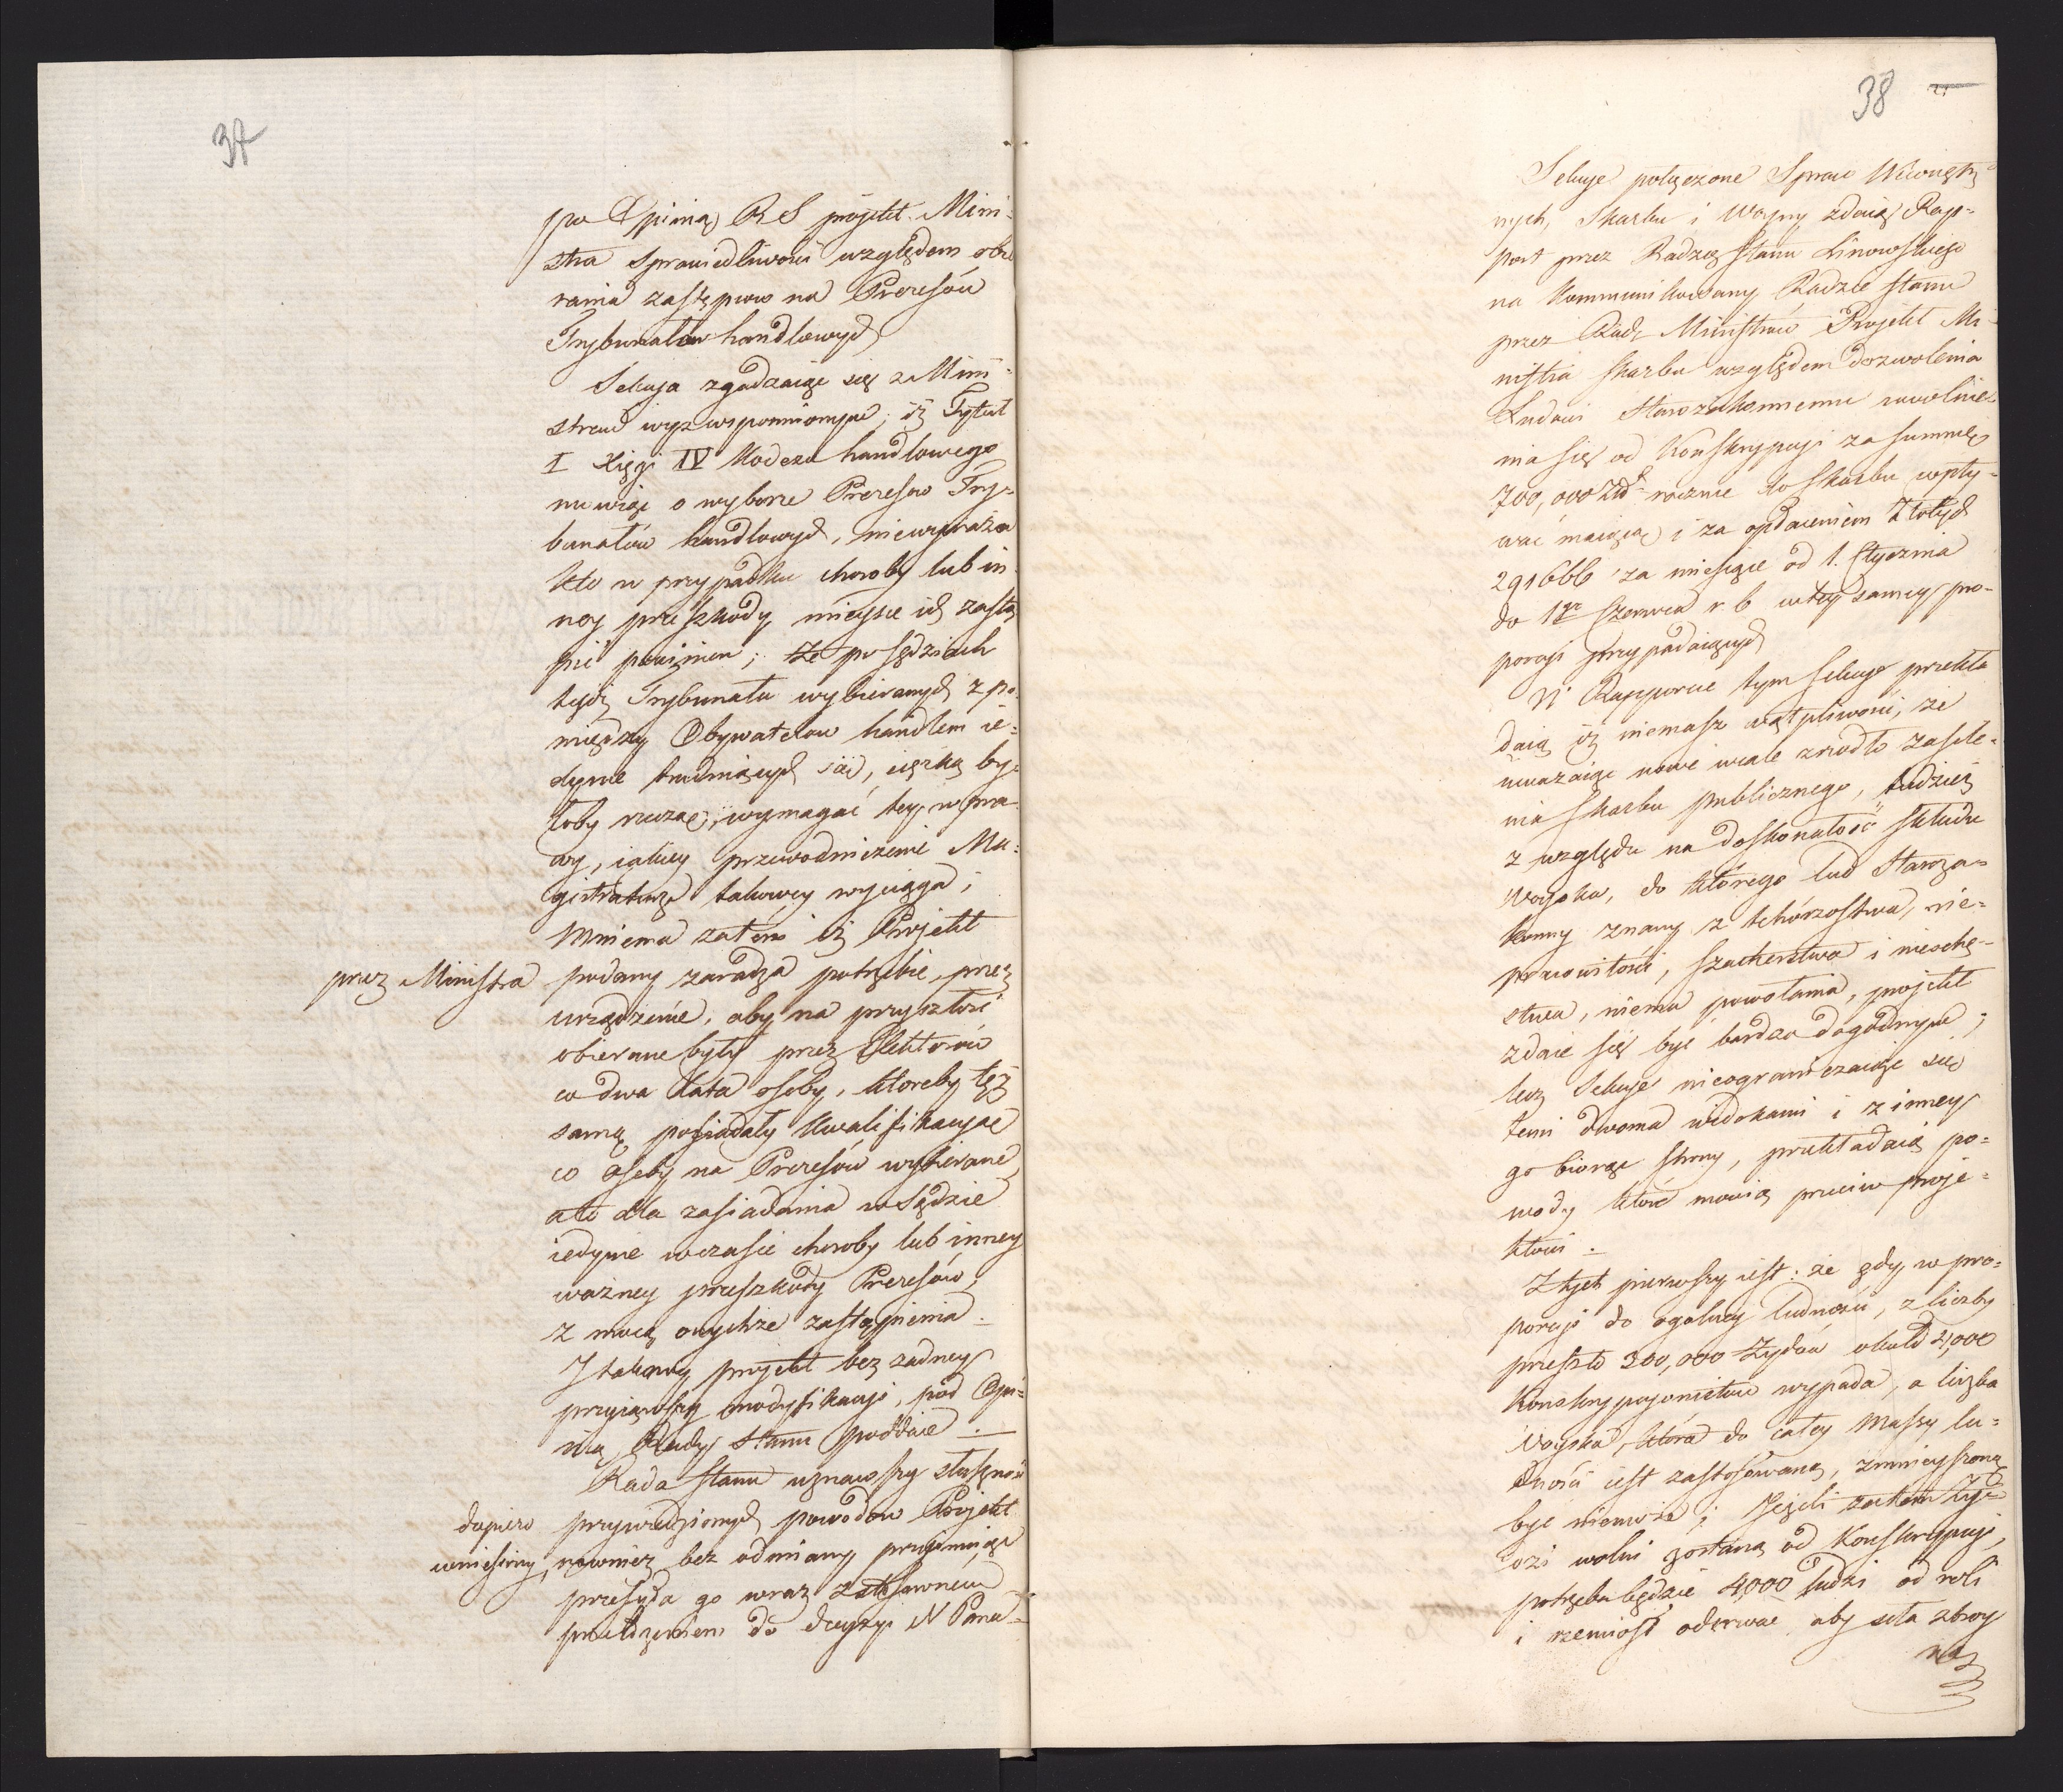 37
pod Opinią RS projekt Mini-
stra Sprawiedliwości względem obie
rania zastępców na Prezesów
Trybunałów handlowych
Sekcja zgadzaiąc się z Mini-
strem wyż wspomnionym, iż Tytuł
I Xięgi IV Kodexu handlowego
mówiąc o wyborze Prezesów Try-
bunałów handlowych, niewyraża
kto w przypadku choroby lub in
ney przeszkody mieysce ich zastą
pić powinien; że po Sędziach
tegoż Trybunału wybieranych z po
między Obywatelów handlem ie-
dynie trudniących się, ciężką by-
łoby rzeczą, wymagać tey wpra
wy, iakiey przewodniczenie Ma-
gistraturze takowey wyciąga;
Mniema zatém iż Projekt
przez Ministra podany zaradza potrzebie, przez
urządzenie, aby na przyszłość
obierane były przez Elektorów
co dwa lata osoby, któreby też
samą posiadały kwalifikacyą
co osoby na Prezesów wybierane
ale dla zasiadania w Sędzie
iedynie w czasie choroby lub inney
ważney przeszkody Prezesów,
z mocą onychże zastąpienia.
I takowy projekt bez żadney
przyiąwszy modyfikacyi, pod Opi-
nią Rady Stanu poddaie.
Rada Stanu uznawszy słuszność
dopiero przywiedzionych powodów Projekt
wniesiony, również bez odmiany przyimuiąc
przesyła go wraz z stosownem
przełożeniem do decyzyi N Pana
38
Sekcye połączone Spraw Wewnętrz
nych, Skarbu i Woyny zdaią Rap-
port przez Radzcę Stanu Linowskiego
na kommunikowany Radzie Stanu
przez Radę Ministrów Projekt Mi-
nistra Skarbu względem dozwolenia
Ludowi Starozakonnemu uwolnie
nia się od Konskrypcyi za summę
700,000 Złł rocznie do Skarbu wpły-
wać maiącą i za opłaceniem Złotych
291666 za miesiące od 1. Stycznia
do 1go Czerwca r b w tey samey pro-
porcyi przypadaiących
W Rapporcie tym Sekcye przekła
daią iż niemasz wątpliwości, że
uważaiąc nowe wcale zrzódło zasile-
nia Skarbu publicznego, tudzież
z względu na doskonałość składu
Woyska, do którego lud Staroza-
konny znany z tchórzostwa, nie-
pracowitości, szacherstwa i nieochę-
stwa, niema powołania, projekt
zdaie się być bardzo dogodnym;
lecz Sekcye nieograniczaiąc się
temi dwoma widokami i z inney
go biorąc strony, przekładaią po-
wody które mówią przeciw proje-
ktowi.
Z tych pierwszy iest: że gdy w pro-
porcyi do ogólney ludności, z liczby
przeszło 300,000 Żydów około 4,000
Konskrypcyonistów wypada, a liczba
Woyska, która do całey massy lu-
dności iest zastosowaną, zmnieyszoną
być niemoże; Jeżeli zatem Ży-
dzi wolni zostaną od Konskrypcyi,
potrzeba będzie 4,000 ludzi od roli
i rzemiosł oderwać, aby siła zbroy
na